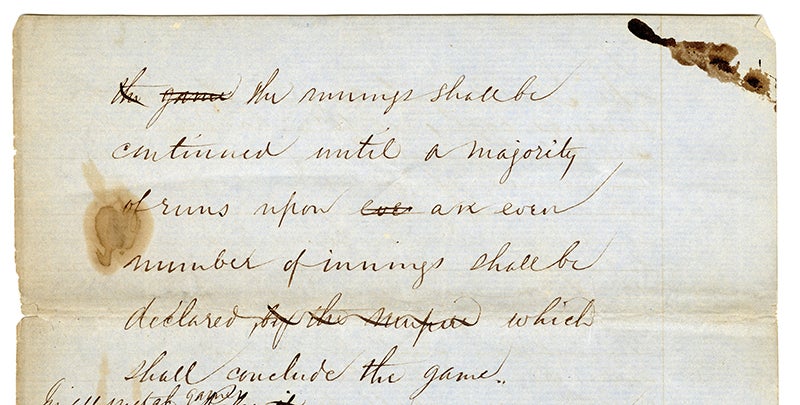 the game the innings shall be
continued until a majority
of runs upon eve an even
number of innings shall be
declared, by the umpire which
shall conclude the game.
game